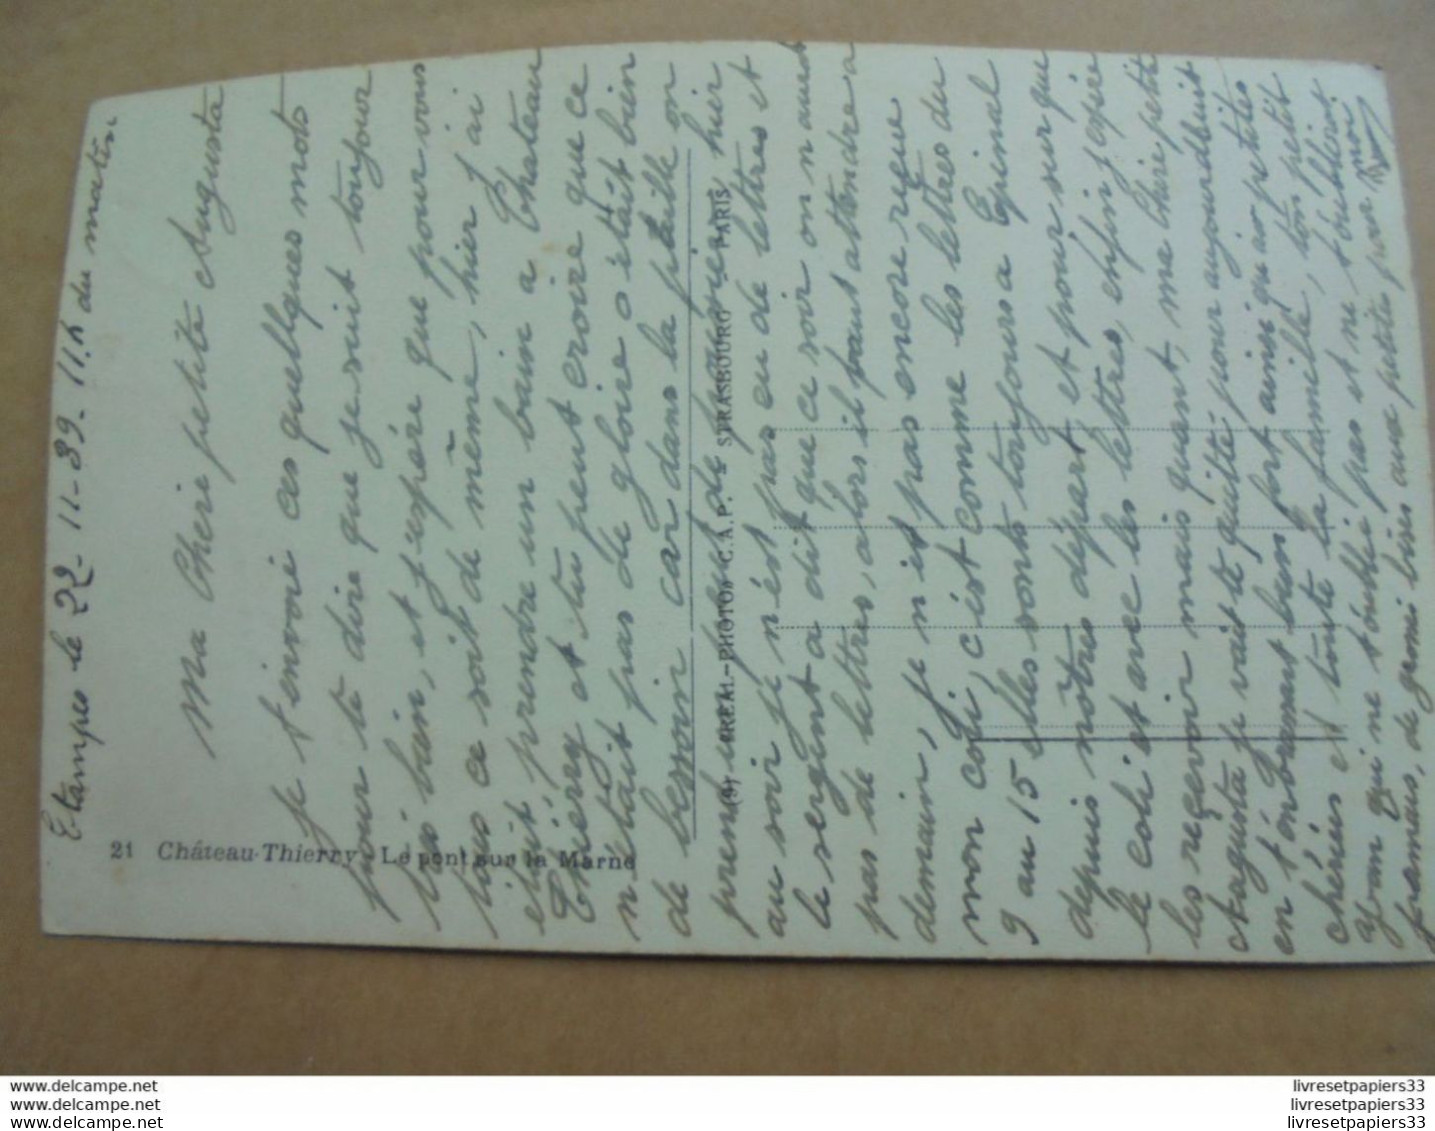 Etampes le 22-11-39. 11.h du matin
Ma Cherie petite Augusta
Je t'envoi ces quellques mots
pour te dire que je suit toujour
très bien, et j'espére que pour vous
tous ce soit de même, hier j'ai
etait prendre un bain a Chateau
Thierry et tu peut croire que ce
n'était pas de gloire s'était bien
de besoin car dans la paille on
prend hier
au soir je n'est pas eu de lettres et
le sergent a dit que ce soir on n'aurait
pas de lettres, alors il faut attendre a
demain, je n'est pas encore reçue
mon coli, c'est comme les lettres du
9 au 15 elles sonts toujours a Epinal
depuis nôtres départ et pour sur que
le coli est avec les lettres, enfin j'espère
les reçevoir mais quant, ma Chère petite
Augusta je vait te quitté pour aujourdhuit
en t'enbrassant bien fort ainsi qu'as petites
chéries et toute la famille, ton petit
qui ne t'oublie pas et ne t'oublirat
jamais, de gromi bises aux petites pour moi
21 Château-Thierry - Le pont sur la Marne
(S) RÉAL-PHOTO C.A.P. STRASBOURG PARIS
www.delcampe.net
www.delcampe.net
www.delcampe.net
livresetpapiers33
livresetpapiers33
livresetpapiers33